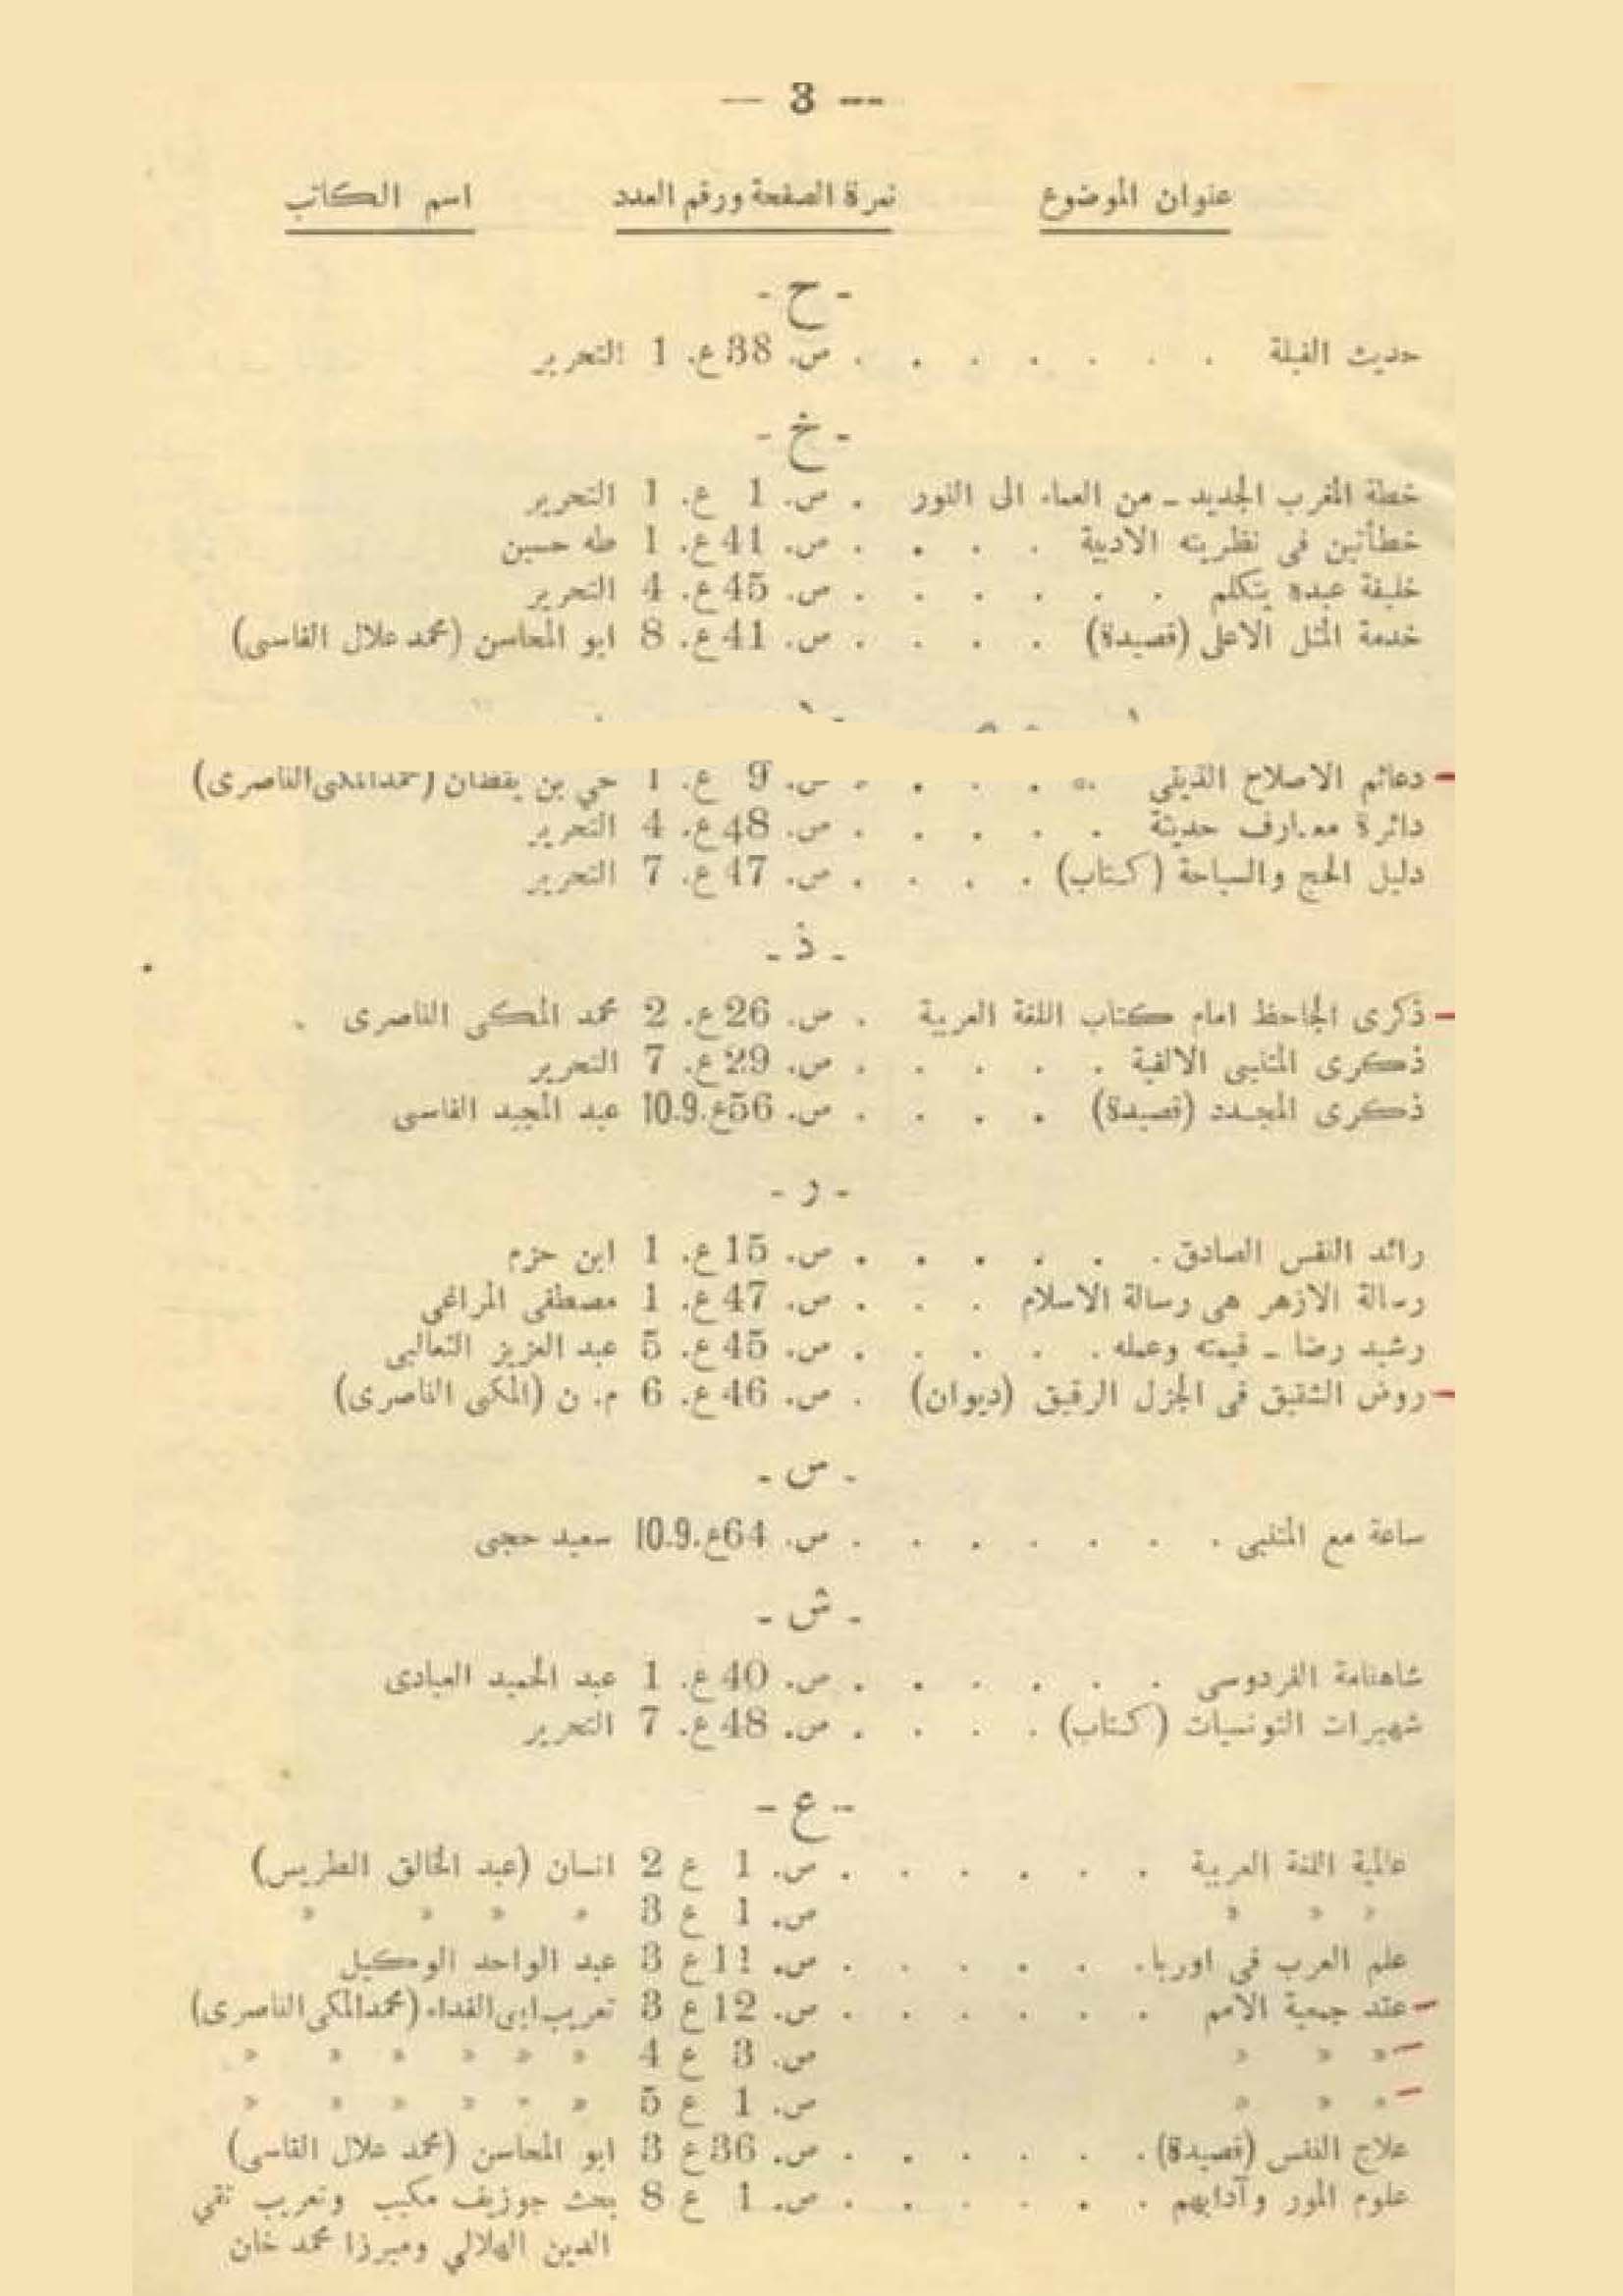 — 3 —
عنوان الموضوع نمرة الصفحة ورقم العدد اسم الكاتب
- ح -
حديث القبلة . . . . . . . ص. 38 ع. 1 التحرير
- خ -
خطة المغرب الجديد ـ من العماء الى النور . ص. 1 ع. 1 التحرير
خطأتين فى نظريته الادبية . . . . ص. 41 ع. 1 طه حسين
خليفة عبده يتكلم . . . . . . ص. 45 ع. 4 التحرير
خدمة المثل الاعلى (قصيدة) . . . . ص. 41 ع. 8 ابو المحاسن (محمد علال الفاسى)
دعائم الاصلاح الدينى . . . . . ص. 9 ع. 1 حي بن يقضان (محمد المكى الناصرى)
دائرة معارف حديثة . . . . . ص. 48 ع. 4 التحرير
دليل الحج والسياحة (كتاب) . . . . ص. 47 ع. 7 التحرير
- ذ -
ذكرى الجاحظ امام كتاب اللغة العربية . ص. 26 ع. 2 محمد المكى الناصرى
ذكرى المتنبى الالفية . . . . . ص. 29 ع. 7 التحرير
ذكرى المجدد (قصيدة) . . . . ص. 56 ع. 10.9 عبد المجيد الفاسى
- ر -
رائد النفس الصادق . . . . . . ص. 15 ع. 1 ابن حزم
رسالة الازهر هى رسالة الاسلام . . . ص. 47 ع. 1 مصطفى المراغى
رشيد رضا ـ قيمته وعمله . . . . . ص. 45 ع. 5 عبد العزيز الثعالبى
روض الشقيق فى الجزل الرقيق (ديوان) . ص. 46 ع. 6 م. ن (المكى الناصرى)
- س -
ساعة مع المتنبى . . . . . . . ص. 64 ع. 10.9 سعيد حجى
- ش -
شاهنامة الفردوسى . . . . . . ص. 40 ع. 1 عبد الحميد العبادى
شهيرات التونسيات (كتاب) . . . . ص. 48 ع. 7 التحرير
- ع -
عالمية اللغة العربية . . . . . . ص. 1 ع 2 انسان (عبد الخالق الطريس)
» » » ص. 1 ع 3 » » » »
علم العرب فى اوربا . . . . . . ص. 11 ع 3 عبد الواحد الوكيل
عند جمعية الامم . . . . . . ص. 12 ع 3 تعريب ابى الفداء (محمد المكى الناصرى)
» » » ص. 3 ع 4 » » » » » »
» » » ص. 1 ع 5 » » » » » »
علاج النفس (قصيدة) . . . . . . ص. 36 ع 3 ابو المحاسن (محمد علال الفاسى)
علوم المور وآدابهم . . . . . . ص. 1 ع 8 بحث جوزيف مكيب وتعريب تقي
الدين الهلالي وميرزا محمد خان